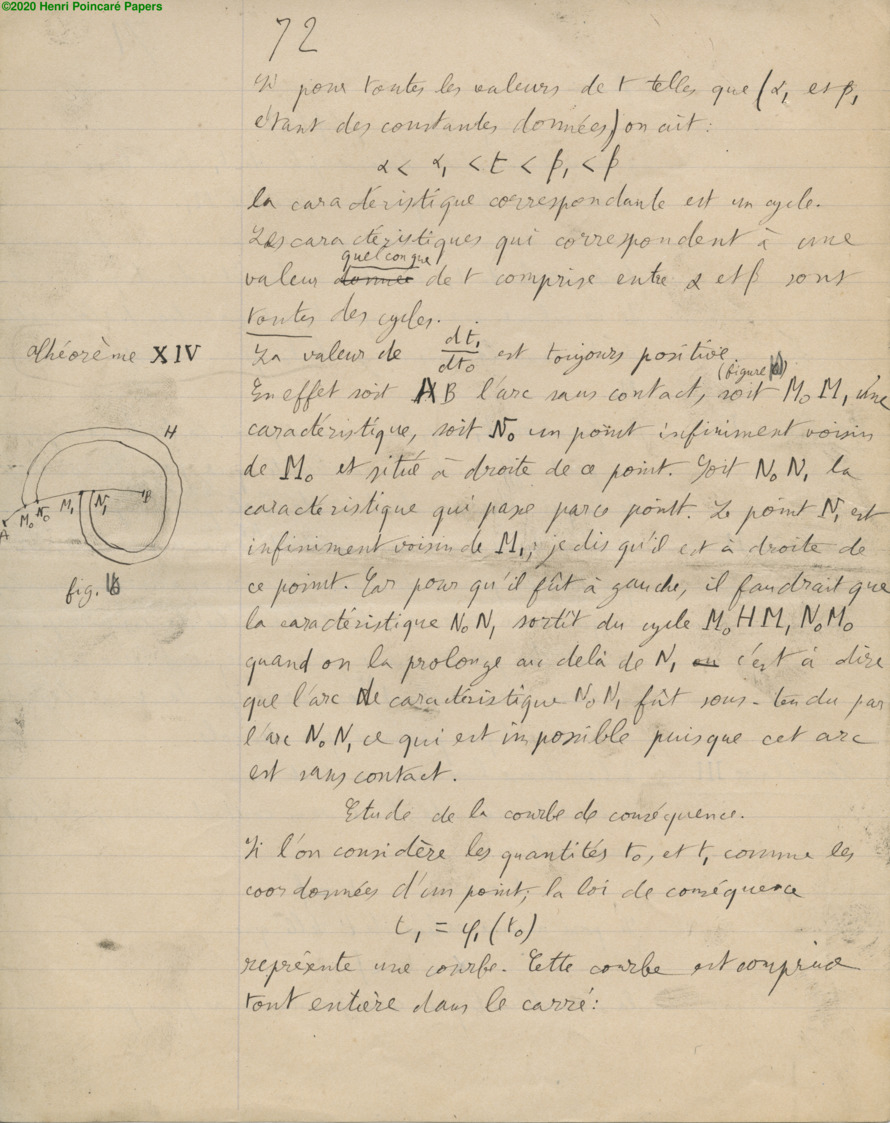 ©2020 Henri Poincaré Papers
72
Si pour toutes les valeurs de t telles que (α₁ et β₁
étant des constantes données) on ait :
α < α₁ < t < β₁ < β
la caractéristique correspondante est un cycle.
Les caractéristiques qui correspondent à une
quelconque
valeur donnée de t comprise entre α et β sont
toutes des cycles.
Théorème XIV
La valeur de dt₁/dt₀ est toujours positive
(figure 16)
En effet soit AB l'arc sans contact, soit M₀ M₁ une
caractéristique, soit N₀ un point infiniment voisin
de M₀ et situé à droite de ce point. Soit N₀ N₁ la
caractéristique qui passe par ce point. Le point N₁ est
infiniment voisin de M₁; je dis qu'il est à droite de
ce point. Car pour qu'il fût à gauche, il faudrait que
la caractéristique N₀ N₁ sortît du cycle M₀ H M₁ N₀ M₀
quand on la prolonge au delà de N₁ ou c'est à dire
que l'arc de caractéristique N₀ N₁ fût sous-tendu par
l'arc N₀ N₁ ce qui est impossible puisque cet arc
est sans contact.
H
A M₀ N₀ M₁ N₁ B
fig. 16
Etude de la courbe de conséquence.
Si l'on considère les quantités t₀, et t₁ comme les
coordonnées d'un point, la loi de conséquence
t₁ = φ₁ (t₀)
représente une courbe. Cette courbe est comprise
tout entière dans le carré :